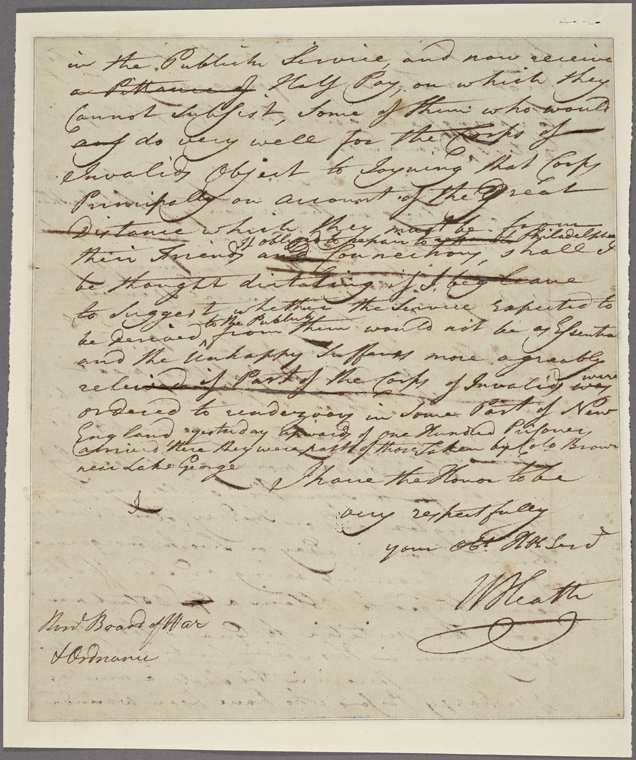 in the Publick Service, and now receive
a Pittance of Half Pay, on which they
Cannot Subsist, Some of them who would
do very well for the Corps of
Invalids Object to Joyning that Corps
Principally on account of the Great
Distance which they must be from
if obliged to repair to Philadelphia
their Friends and Connections, shall I
be thought dictating if I beg leave
to Suggest, whether the Service Expected to
be derived from them would not be as Essential
to the Publick
and the Unhappy Sufferers more agreably
relieved if Part of the Corps of Invalids were
ordered to rendezvous in Some Part of New
England yesterday upwards of one Hundred Prisoners
arrived Here they were part of those Taken by Colo Brown
near Lake George
I have the Honor to be
I
very respectfully
your Obt Hble Servt
W Heath
Honl Board of War
& Ordnance